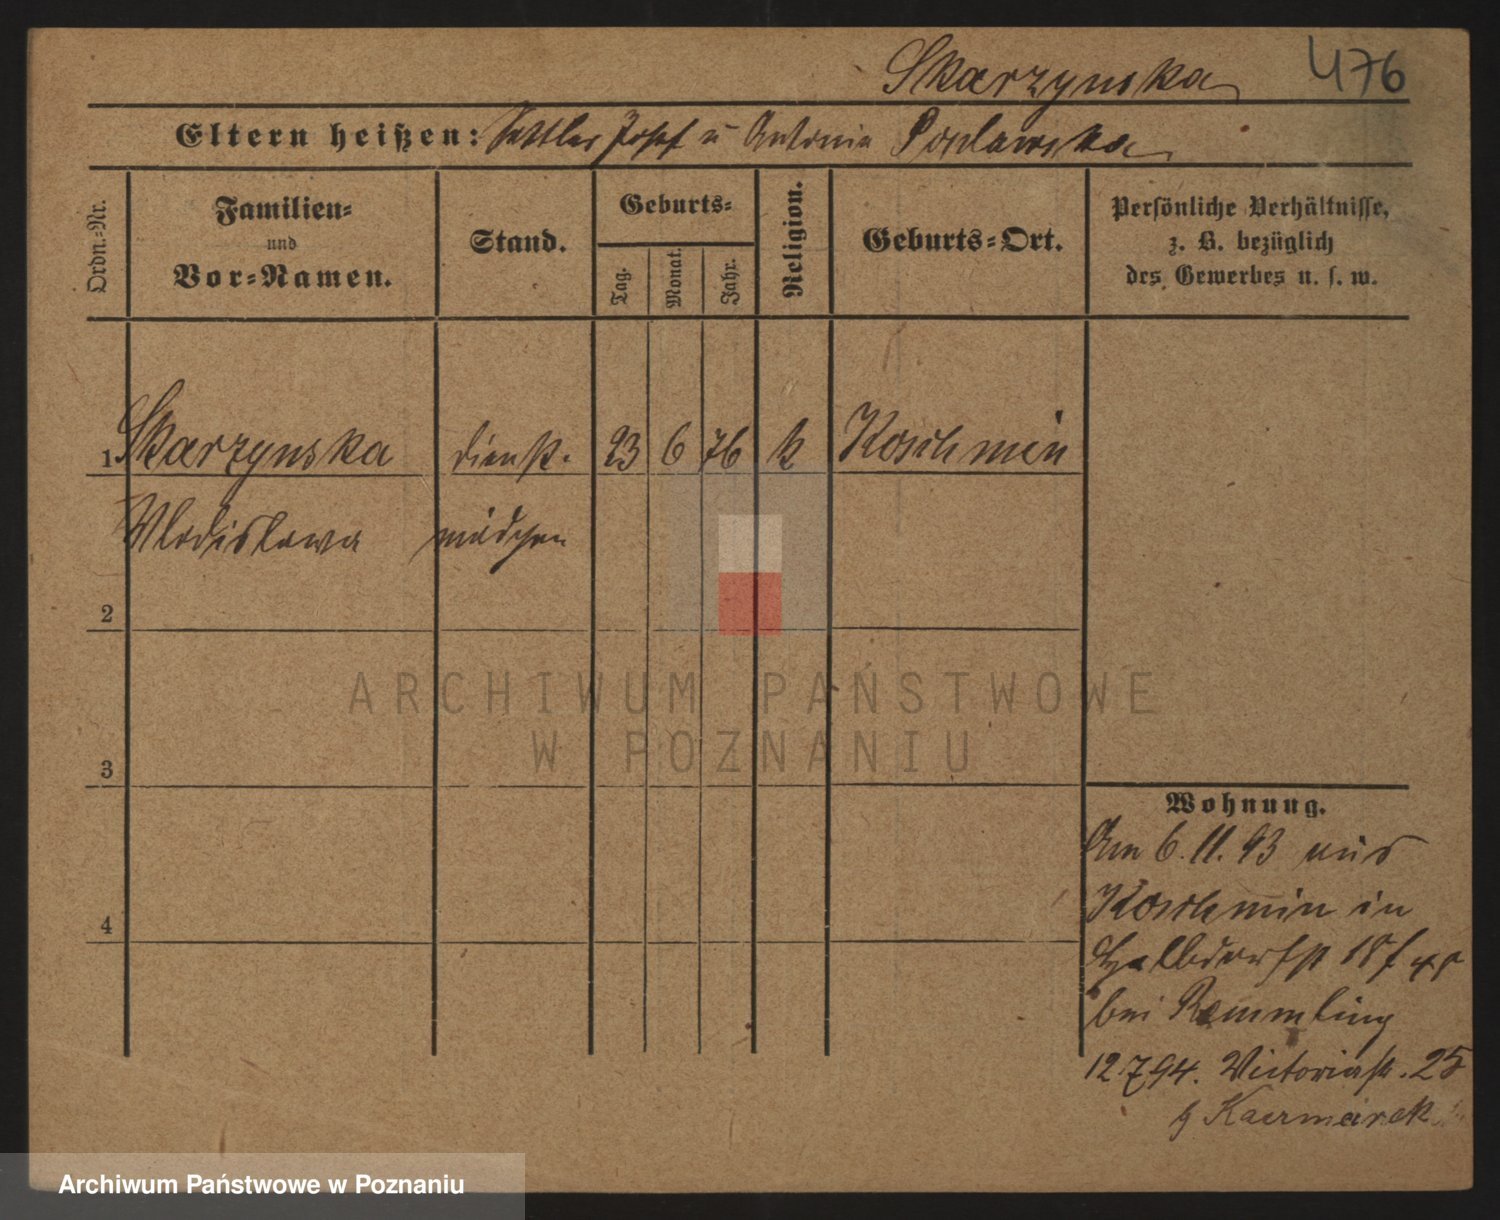 Skarzynska 476
Eltern heißen: Sattler Josef u Antonie Poplawska
Ordn.-Nr.
Familien-
und
Vor-Namen.
Stand.
Geburts-
Tag.
Monat.
Jahr.
Religion.
Geburts-Ort.
Persönliche Verhältnisse,
z. B. bezüglich
des Gewerbes u. s. w.
1 Skarzynska dienst. 23 6 76 k Koschmin
Wladislawa mädchen
2
3
4
Wohnung.
Am 6.11.93 aus
Koschmin in
Halbdorfst 18
bei Remmling
12.7.94. Victoriast. 25
b Kaczmarek
ARCHIWUM PAŃSTWOWE
W POZNANIU
Archiwum Państwowe w Poznaniu